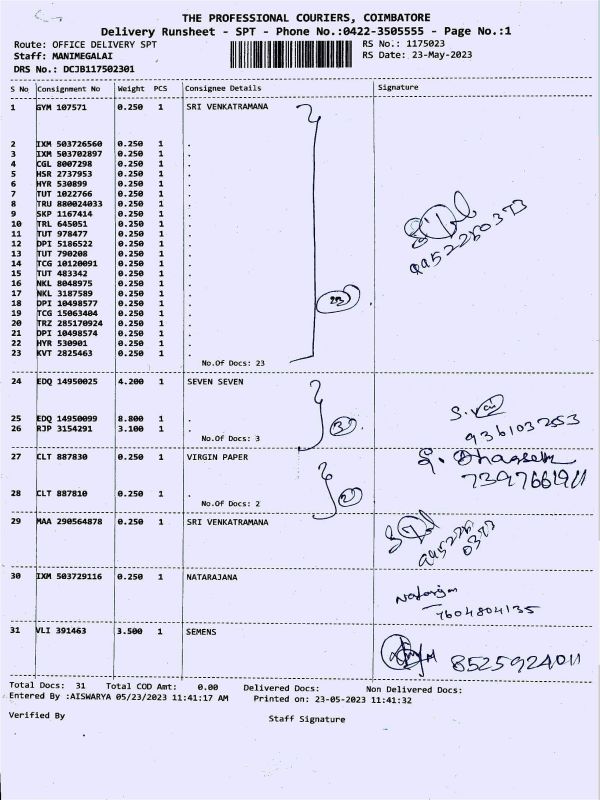 THE PROFESSIONAL COURIERS, COIMBATORE
Delivery Runsheet - SPT - Phone No.:0422-3505555 - Page No.:1
Route: OFFICE DELIVERY SPT RS No.: 1175023
Staff: MANIMEGALAI RS Date: 23-May-2023
DRS No.: DCJB117502301
S No Consignment No Weight PCS Consignee Details Signature
1 GYM 107571 0.250 1 SRI VENKATRAMANA
2 IXM 503726560 0.250 1 .
3 IXM 503702897 0.250 1 .
4 CGL 8007298 0.250 1 .
5 HSR 2737953 0.250 1 .
6 HYR 530899 0.250 1 .
7 TUT 1022766 0.250 1 .
8 TRU 880024033 0.250 1 .
9 SKP 1167414 0.250 1 .
10 TRL 645051 0.250 1 .
11 TUT 978477 0.250 1 .
12 DPI 5186522 0.250 1 .
13 TUT 790208 0.250 1 .
14 TCG 10120091 0.250 1 .
15 TUT 483342 0.250 1 .
16 NKL 8048975 0.250 1 .
17 NKL 3187589 0.250 1 .
18 DPI 10498577 0.250 1 .
19 TCG 15063404 0.250 1 .
20 TRZ 285170924 0.250 1 .
21 DPI 10498574 0.250 1 .
22 HYR 530901 0.250 1 .
23 KVT 2825463 0.250 1 .
23
9952260373
No.Of Docs: 23
24 EDQ 14950025 4.200 1 SEVEN SEVEN
25 EDQ 14950099 8.800 1 .
26 RJP 3154291 3.100 1 .
3
No.Of Docs: 3
27 CLT 887830 0.250 1 VIRGIN PAPER
7397661911
28 CLT 887810 0.250 1 .
2
No.Of Docs: 2
29 MAA 290564878 0.250 1 SRI VENKATRAMANA
30 IXM 503729116 0.250 1 NATARAJANA
Natarajan
7604804135
31 VLI 391463 3.500 1 SEMENS
8525924011
Total Docs: 31 Total COD Amt: 0.00 Delivered Docs: Non Delivered Docs:
Entered By :AISWARYA 05/23/2023 11:41:17 AM Printed on: 23-05-2023 11:41:32
Verified By Staff Signature